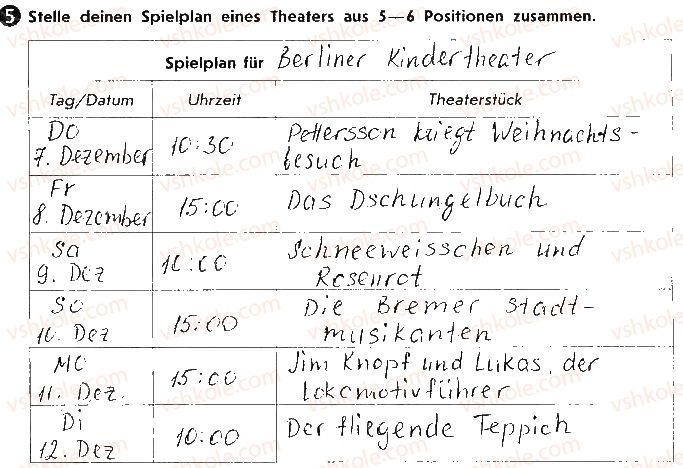 5 Stelle deinen Spielplan eines Theaters aus 5—6 Positionen zusammen.
Spielplan für Berliner Kindertheater
Tag/Datum Uhrzeit Theaterstück
Do
7. Dezember 10:30 Pettersson kriegt Weihnachts-
besuch
Fr
8. Dezember 15:00 Das Dschungelbuch
Sa
9. Dez 10:00 Schneeweisschen und
Rosenrot
So
10. Dez 15:00 Die Bremer Stadt-
musikanten
Mo
11. Dez. 15:00 Jim Knopf und Lukas, der
Lokomotivführer
Di
12. Dez 10:00 Der fliegende Teppich
vshkole.com